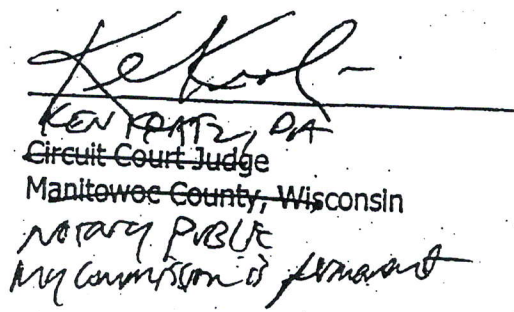 KEN KRATZ, DA
Circuit Court Judge
Manitowoc County, Wisconsin
Notary Public
My Commission is permanent